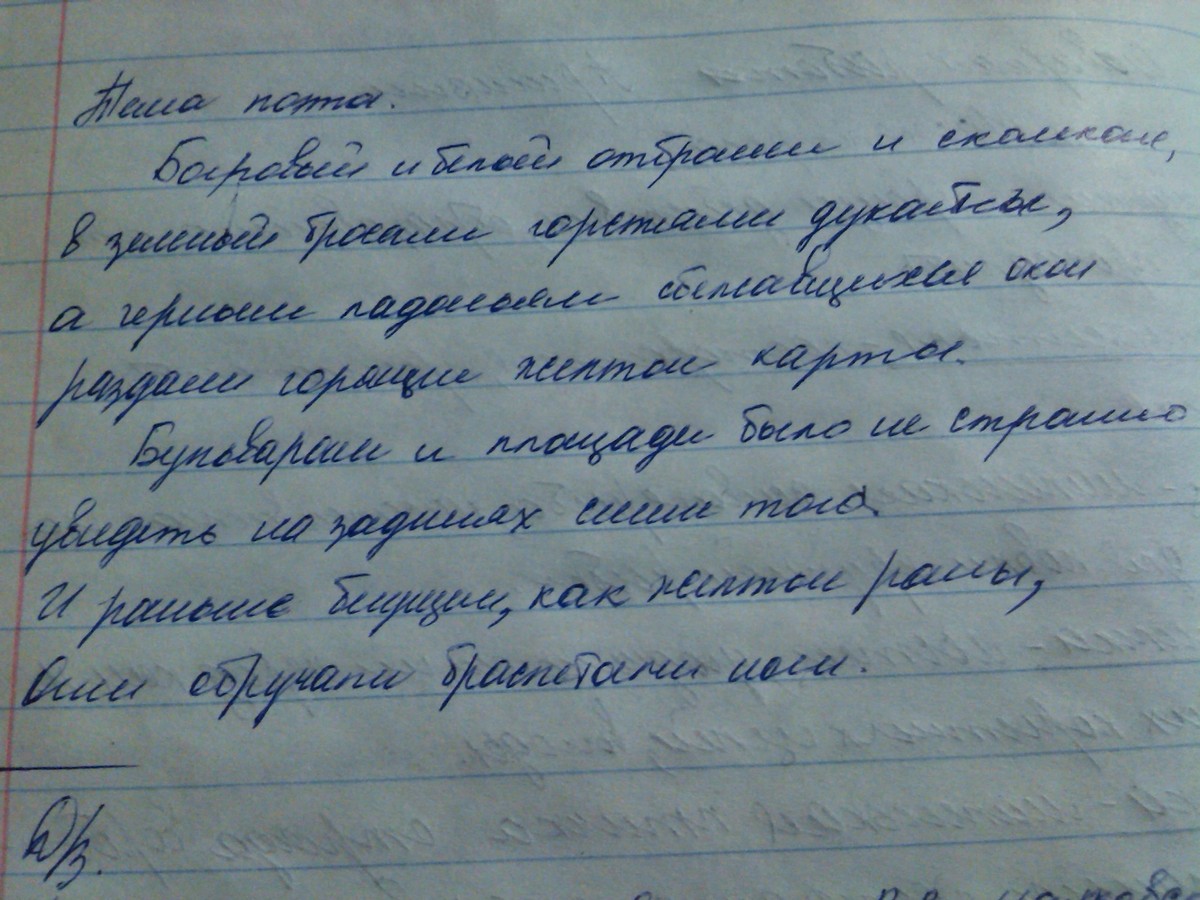 Тема поэта.
Багровый и белый отброшен и скомкан,
в зеленый бросали горстями дукаты,
а черным ладоням сбежавшихся окон
раздали горящие желтые карты.
Бульварам и площади было не страшно
увидеть на зданиях синие тоги.
И раньше бегущим, как желтые раны,
Огни обручали браслетами ноги.
Д/з.